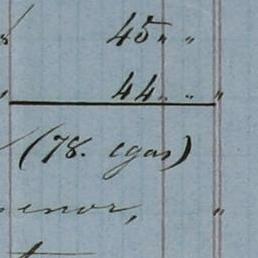 45 " "
44 " " "
(78. cgas)
enor, "